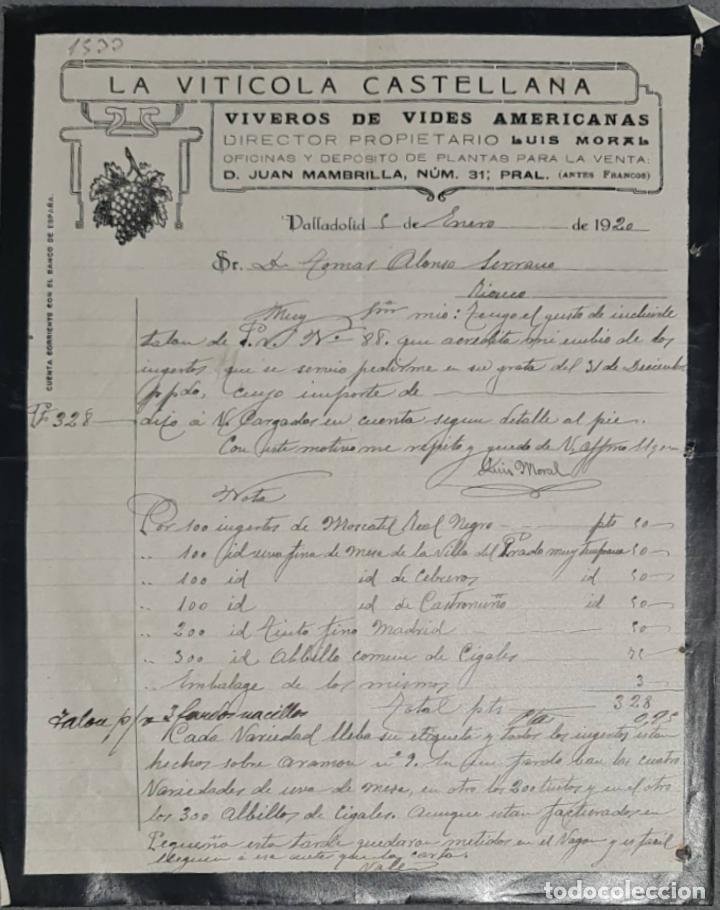 1533
LA VITÍCOLA CASTELLANA
VIVEROS DE VIDES AMERICANAS
DIRECTOR PROPIETARIO LUIS MORAL
OFICINAS Y DEPÓSITO DE PLANTAS PARA LA VENTA:
D. JUAN MAMBRILLA, NÚM. 31; PRAL. (ANTES FRANCOS)
CUENTA CORRIENTE CON EL BANCO DE ESPAÑA.
Valladolid 5 de Enero de 1920
Sr. D Tomas Alonso Serrano
Rioseco
Muy Sr mio: Tengo el gusto de incluirle
talon de P.V. Nº 88. que acredita mi embio de los
ingertos que se servio pedirme en su grata del 31 de Diciembre
ppdo, cuyo importe de
Pts 328 dejo á V. Cargados en cuenta segun detalle al pie.
Con este motivo me repito y quedo de V. affmo
Luis Moral
Nota
Por 100 ingertos de Moscatel Real Negro pts 50
,, 100 id uva fina de mesa de la Villa del Prado muy temprana 50
,, 100 id id de Cebreros id 50
,, 100 id id de Castronuño id 50
,, 200 id Tinto fino Madrid 50
,, 300 id Albillo comun de Cigales 75
,, Embalage de los mismos 3
Total pts 328
Talon p/v 3 fardos nacillos 0,95
Cada Variedad lleba su etiqueta y todos los ingertos estan
hechos sobre aramon nº 9. En un fardo van las cuatro
Variedades de uva de mesa, en otro los 200 tintos y en el otro
los 300 Albillos de Cigales. Aunque estan facturados en
Pequeña esta tarde quedaron metidos en el Vagon y es facil
lleguen á esa antes que la carta.
Vale
todocoleccion
todocoleccion.net